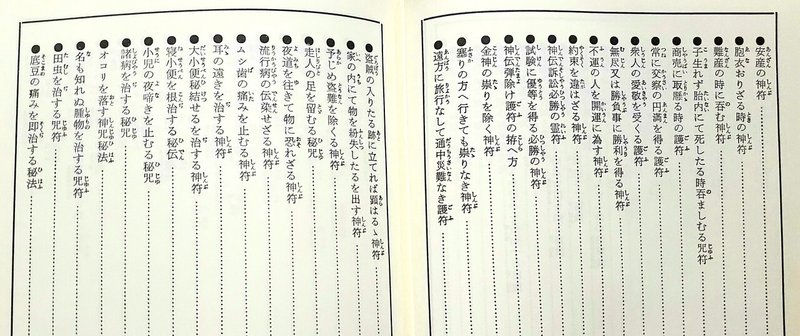 ●安産の神符
●胞衣おりざる時の神符
●難産の時に呑む神符
●子生れず胎内にて死したる時呑ましむる咒符
●商売に取懸る時の護符
●常に交際の円満を得る護符
●衆人の愛敬を受くる護符
●無尽又は勝負事に勝利を得る神符
●不運の人を開運に為す神符
●約束を違はざる神符
●神伝訴訟必勝の霊符
●試験に優等を得る必勝の神符
●神伝弾除け護符の拵へ方
●金神の祟りを除く神符
●塞りの方へ行きても祟りなき神符
●遠方に旅行なして途中災難なき護符
●盗賊の入りたる跡に立てれば顕はるゝ神符
●家の内にて物を紛失したるを出す神符
●予じめ盗難を除くる神符
●走人の足を留むる秘咒
●夜道を往きて物に恐れざる神符
●流行病の伝染せざる神符
●ムシ歯の痛みを止むる神符
●耳の遠きを治する神符
●大小便秘結せるを治する神符
●寝小便を根治する秘伝
●小児の夜啼きを止むる秘咒
●諸病を治する秘咒
●オコリを落す神咒秘法
●名も知れぬ腫物を治する咒符
●田虫を治する咒符
●底豆の痛みを即治する秘法